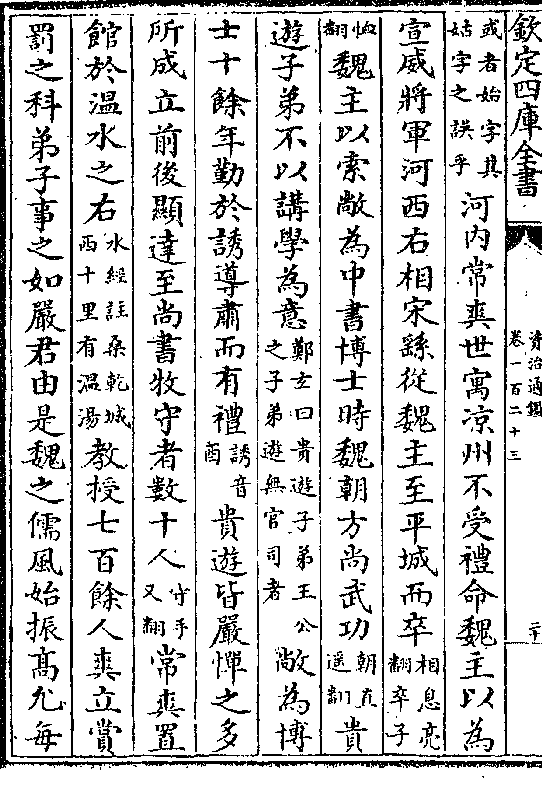 欽定四庫全書
資治通鑑
卷一百二十三
二十
或者始字其姑字之誤乎河内常爽世寓凉州不受禮命魏主以為
宣威將軍河西右相宋繇從魏主至平城而卒相息亮翻卒子
恤翻魏主以索敞為中書博士時魏朝方尚武功朝直遥翻貴
遊子弟不以講學為意鄭玄曰貴遊子弟王公之子弟遊無官司者敞為博
士十餘年勤於誘導肅而有禮誘音酉貴遊皆嚴憚之多
所成立前後顯達至尚書牧守者數十人守手又翻常爽置
館於温水之右水經註桑乾城西十里有温湯教授七百餘人爽立賞
罰之科弟子事之如嚴君由是魏之儒風始振髙允每